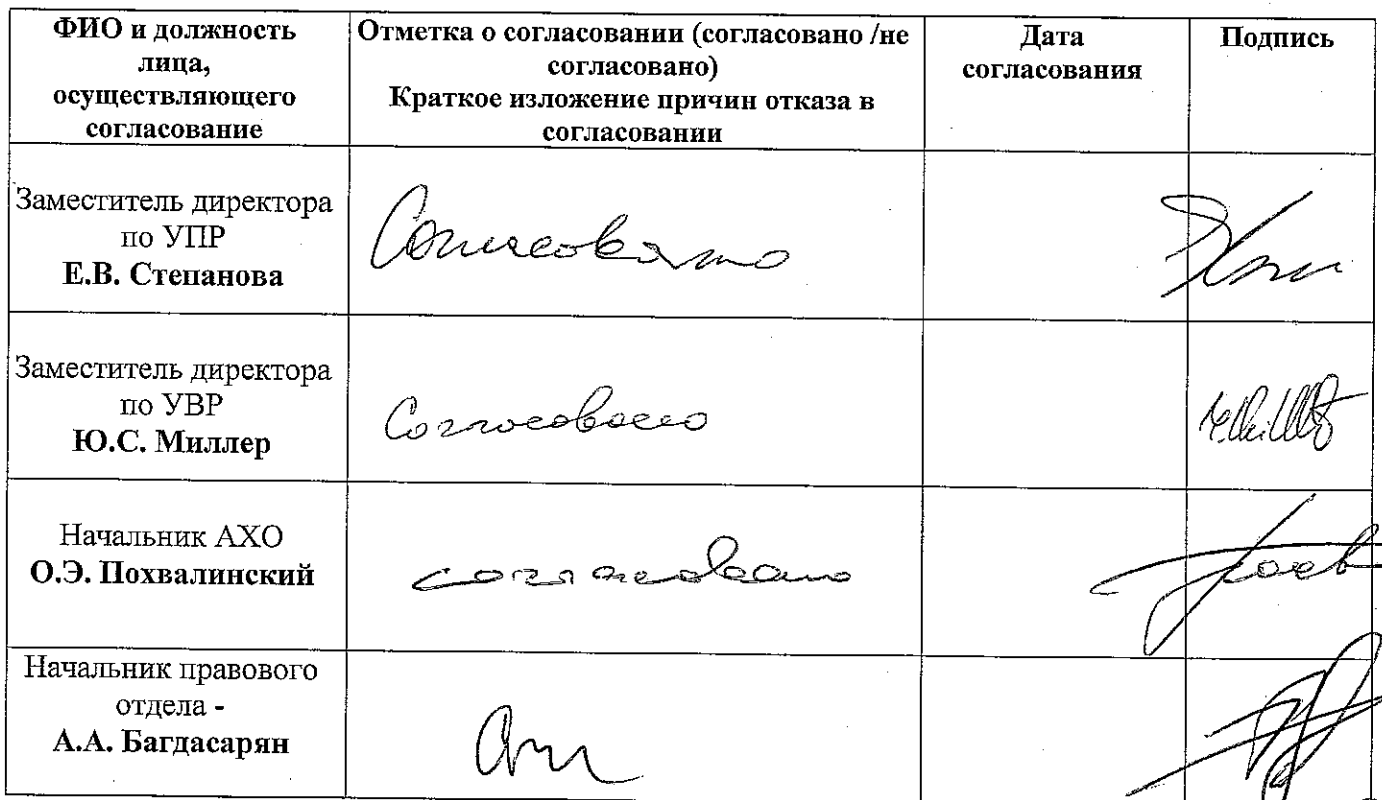 ФИО и должность
лица,
осуществляющего
согласование
Отметка о согласовании (согласовано /не
согласовано)
Краткое изложение причин отказа в
согласовании
Дата
согласования
Подпись
Заместитель директора
по УПР
Е.В. Степанова
Согласовано
Заместитель директора
по УВР
Ю.С. Миллер
Согласовано
Начальник АХО
О.Э. Похвалинский
согласовано
Начальник правового
отдела -
А.А. Багдасарян